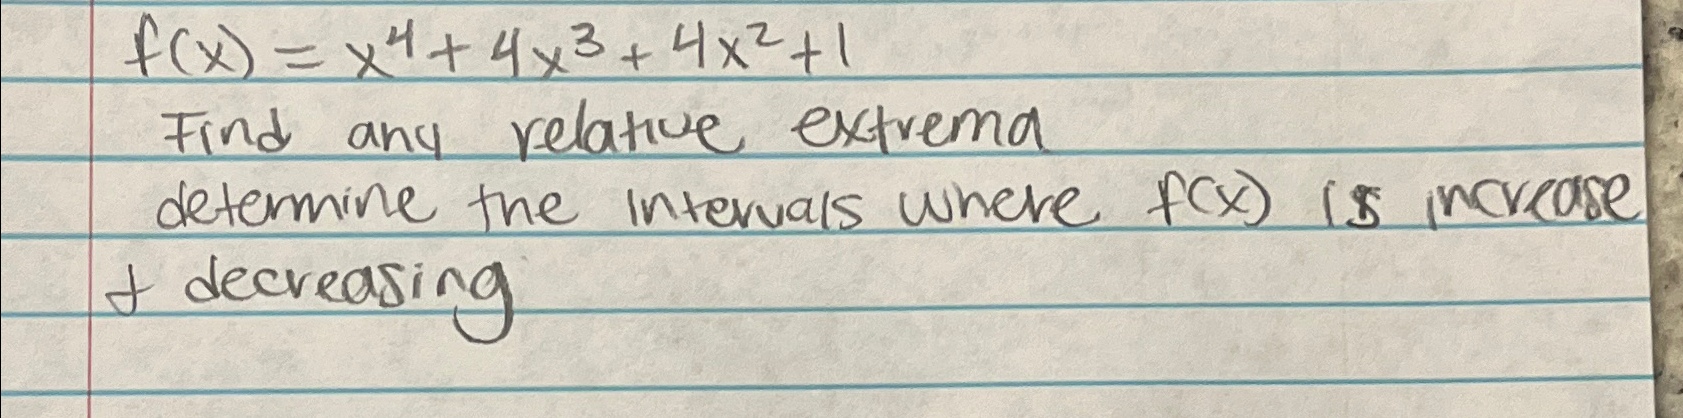 f(x) = x⁴ + 4x³ + 4x² + 1
Find any relative extrema
determine the intervals where f(x) is increase
+ decreasing